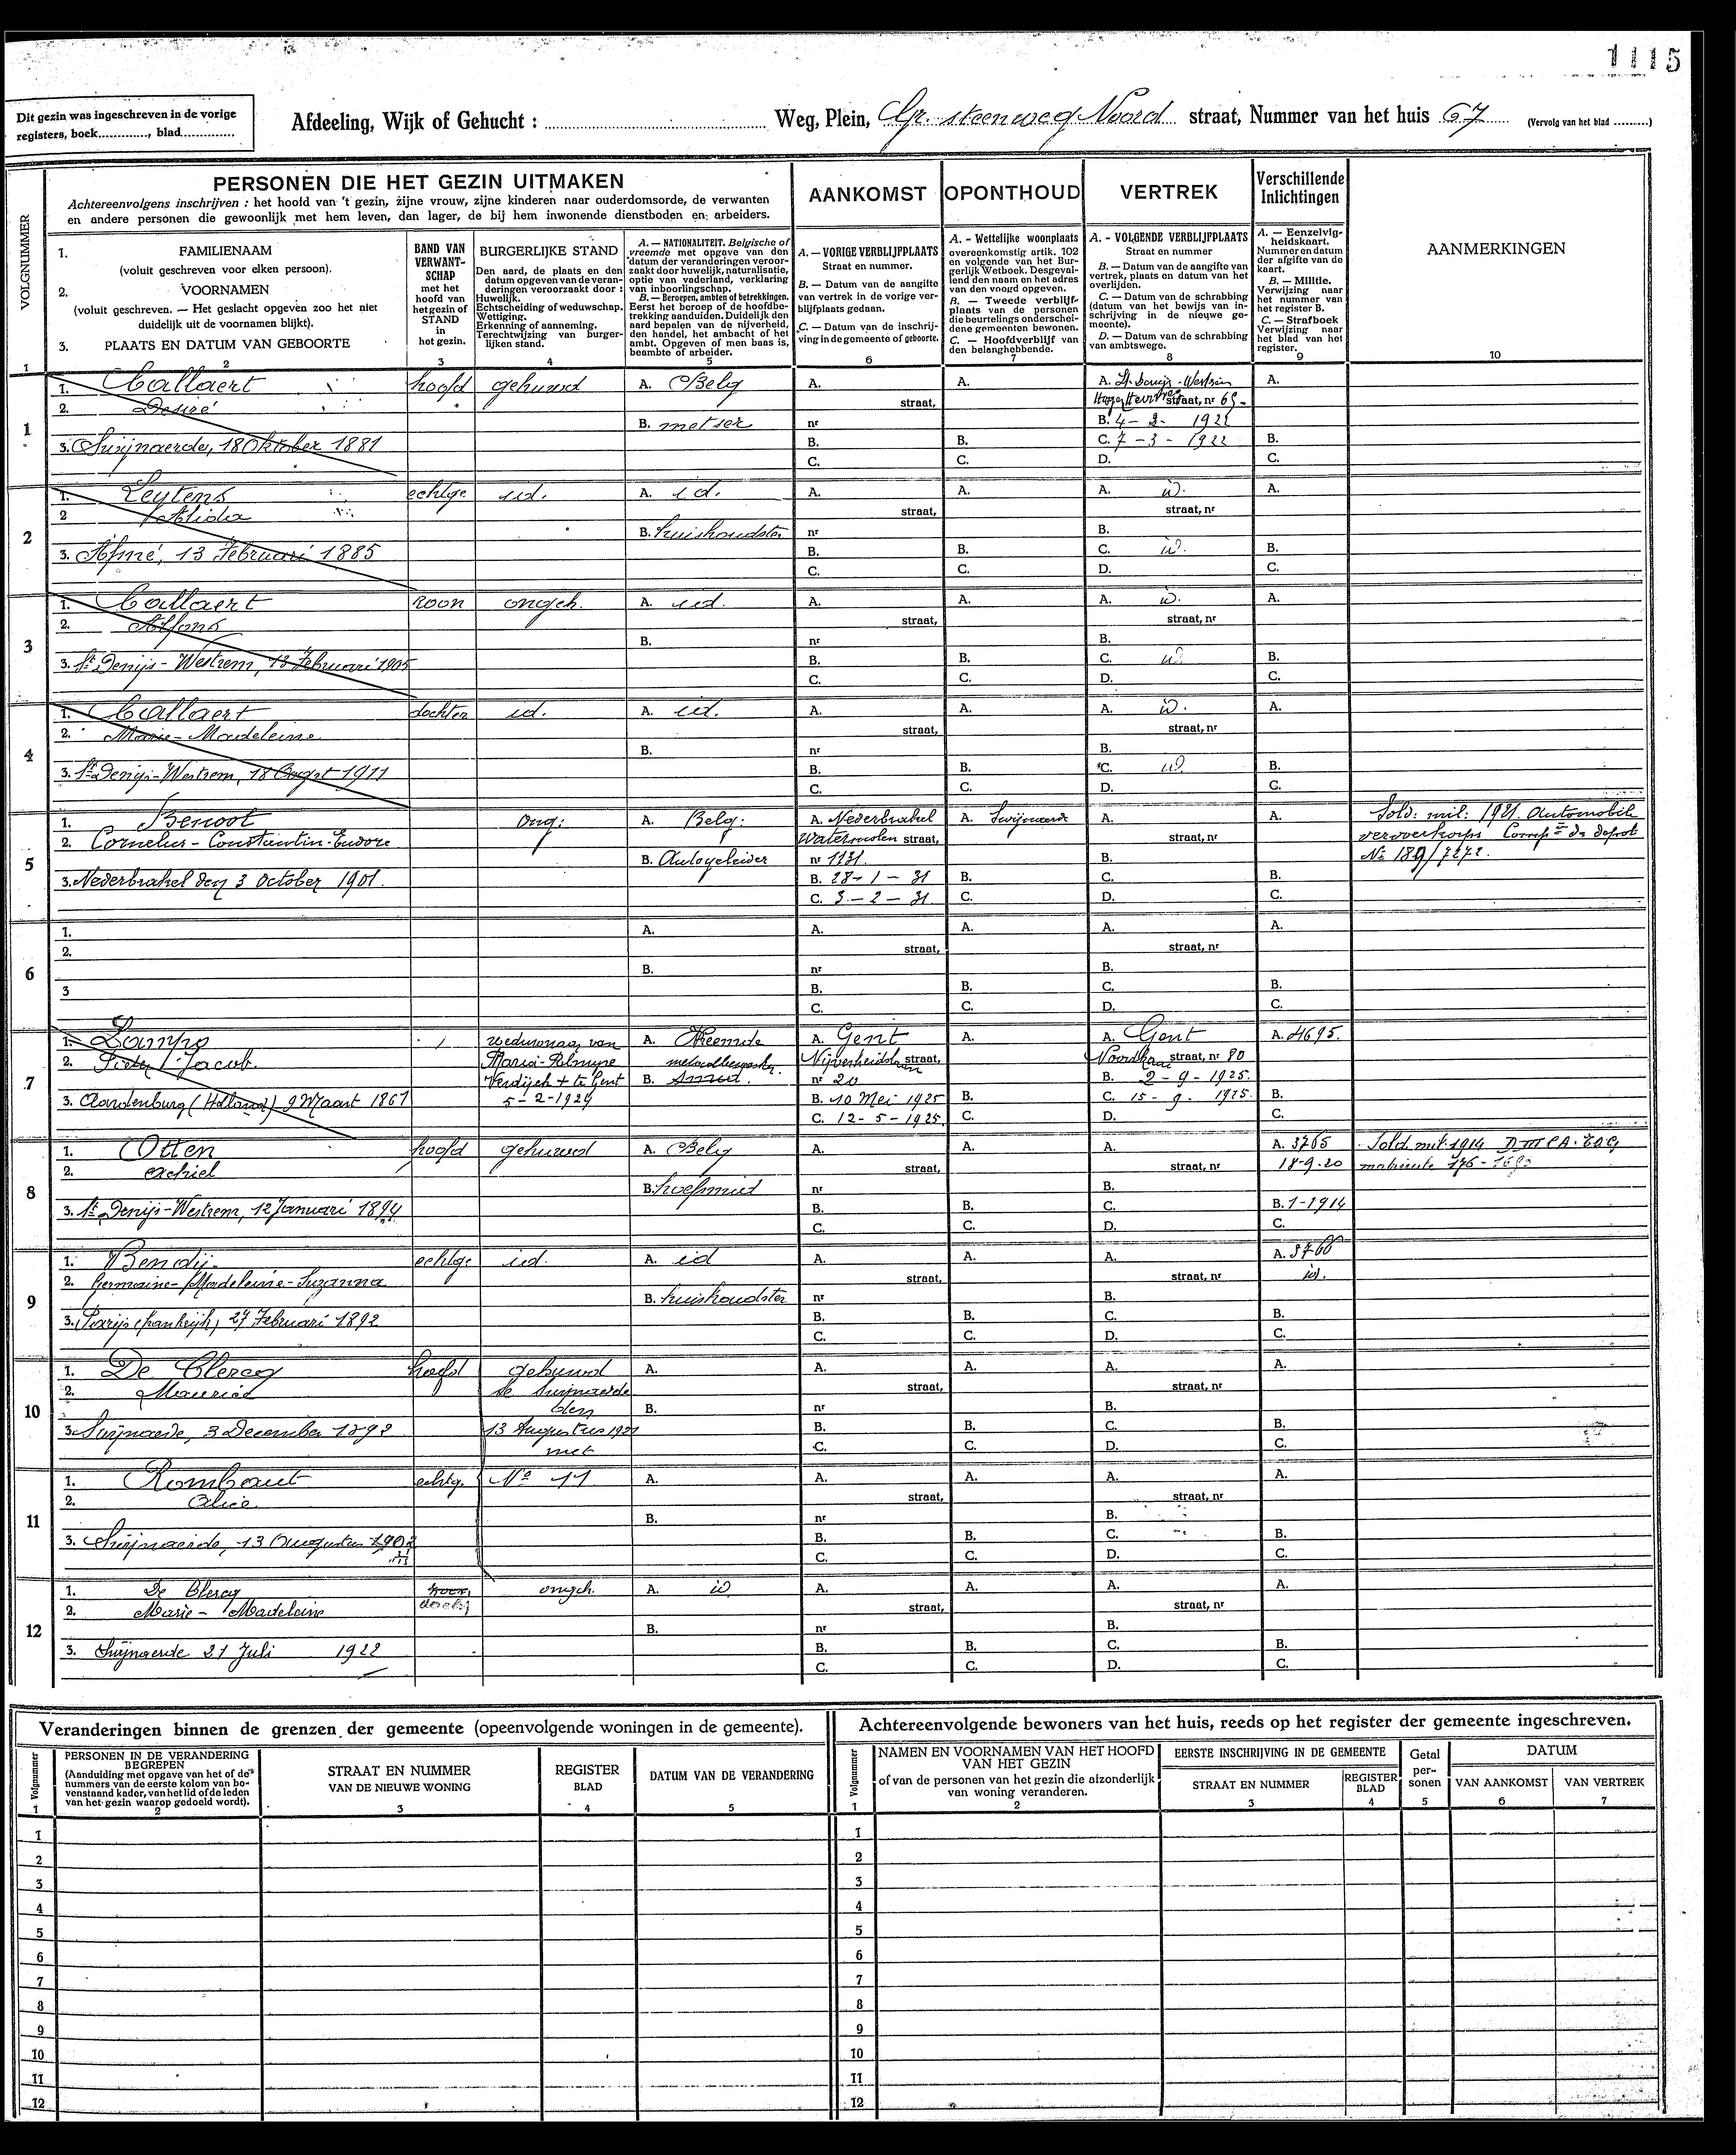 1115
Dit gezin was ingeschreven in de vorige
registers, boek............, blad..............
Afdeeling, Wijk of Gehucht : ........................ Weg, Plein, Gr. steenweg Noord straat, Nummer van het huis 67 (Vervolg van het blad .........)
VOLGNUMMER
PERSONEN DIE HET GEZIN UITMAKEN
Achtereenvolgens inschrijven : het hoofd van 't gezin, zijne vrouw, zijne kinderen naar ouderdomsorde, de verwanten
en andere personen die gewoonlijk met hem leven, dan lager, de bij hem inwonende dienstboden en arbeiders.
AANKOMST
OPONTHOUD
VERTREK
Verschillende
Inlichtingen
1. FAMILIENAAM
(voluit geschreven voor elken persoon).
2. VOORNAMEN
(voluit geschreven. — Het geslacht opgeven zoo het niet
duidelijk uit de voornamen blijkt).
3. PLAATS EN DATUM VAN GEBOORTE
BAND VAN
VERWANT-
SCHAP
met het
hoofd van
het gezin of
STAND
in
het gezin.
BURGERLIJKE STAND
Den aard, de plaats en den
datum opgeven van de veran-
deringen veroorzaakt door :
Huwelijk.
Echtscheiding of weduwschap.
Wettiging.
Erkenning of aanneming.
Terechtwijzing van burger-
lijken stand.
A. — NATIONALITEIT. Belgische of
vreemde met opgave van den
datum der veranderingen veroor-
zaakt door huwelijk, naturalisatie,
optie van vaderland, verklaring
van inboorlingschap.
B. — Beroepen, ambten of betrekkingen.
Eerst het beroep of de hoofdbe-
trekking aanduiden. Duidelijk den
aard bepalen van de nijverheid,
den handel, het ambacht of het
ambt. Opgeven of men baas is,
beambte of arbeider.
A. — VORIGE VERBLIJFPLAATS
Straat en nummer.
B. — Datum van de aangifte
van vertrek in de vorige ver-
blijfplaats gedaan.
C. — Datum van de inschrij-
ving in de gemeente of geboorte.
A. - Wettelijke woonplaats
overeenkomstig artik. 102
en volgende van het Bur-
gerlijk Wetboek. Desgeval-
lend den naam en het adres
van den voogd opgeven.
B. — Tweede verblijf-
plaats van de personen
die beurtelings onderschei-
dene gemeenten bewonen.
C. — Hoofdverblijf van
den belanghebbende.
A. - VOLGENDE VERBLIJFPLAATS
Straat en nummer
B. — Datum van de aangifte van
vertrek, plaats en datum van het
overlijden.
C. — Datum van de schrabbing
(datum van het bewijs van in-
schrijving in de nieuwe ge-
meente).
D. — Datum van de schrabbing
van ambtswege.
A. — Eenzelvig-
heidskaart.
Nummer en datum
der afgifte van de
kaart.
B. — Militie.
Verwijzing naar
het nummer van
het register B.
C. — Strafboek
Verwijzing naar
het blad van het
register.
AANMERKINGEN
1 2 3 4 5 6 7 8 9 10
1
1. Callaert hoofd gehuwd A. Belg A. A. A. St. Denijs-Westrem A.
2. Desiré straat, straat, nr 65
B. metser nr B. 4 - 3 - 1922
3. Swijnaerde, 18 Oktober 1881 B. B. C. 7 - 3 - 1922 B.
C. C. D. C.
2
1. Leytens echtge id. A. id. A. A. A. id. A.
2 Alida straat, straat, nr
B. huishoudster nr B.
3. Afsné, 13 Februari 1885 B. B. C. id. B.
C. C. D. C.
3
1. Callaert zoon ongeh. A. id. A. A. A. id. A.
2. Alfons straat, straat, nr
B. nr B.
3. St Denijs-Westrem, 13 Februari 1905 B. B. C. id. B.
C. C. D. C.
4
1. Callaert dochter id. A. id. A. A. A. id. A.
2. Marie-Madeleine straat, straat, nr
B. nr B.
3. St Denijs-Westrem, 18 Oogst 1911 B. B. C. id. B.
C. C. D. C.
5
1. Benoot ong: A. Belg: A. Nederbrakel A. Swijnaerde A. A. Sold: mil: 1921. Automobiel
2. Cornelius-Constantin-Eudore Watermolen straat, straat, nr vervoerkorps Comp de depot
B. Autogeleider nr 1131. B. No 189/7272.
3. Nederbrakel den 3 October 1901. B. 28-1-31 B. C. B.
C. 3-2-31 C. D. C.
6
1. A. A. A. A. A.
2. straat, straat, nr
B. nr B.
3 B. B. C. B.
C. C. D. C.
7
1. Lampo weduwnaar van A. Vreemde A. Gent A. A. Gent A. 4695.
2. Pieter Jacob. Maria-Palmyre Nijverheidslaan straat, Noordkaai straat, nr 80
Verdijck + te Gent B. nr 20 B. 2-9-1925.
3. Aardenburg (Holland) 9 Maart 1867 5-2-1924 B. 10 Mei 1925 B. C. 15-9-1925. B.
C. 12-5-1925. C. D. C.
8
1. Otten hoofd gehuwd A. Belg A. A. A. A. 3765 Sold. mil. 1914
2. Achiel straat, straat, nr 18-9-20
B. hoefsmid nr B.
3. St Denijs-Westrem, 12 Januari 1894 B. B. C. B. 1-1914
C. C. D. C.
9
1. Bendij. echtge id. A. id A. A. A. A. 3766
2. Germaine-Madeleine-Suzanna straat, straat, nr id.
B. huishoudster nr B.
3. Parijs (frankrijk) 27 Februari 1892 B. B. C. B.
C. C. D. C.
10
1. De Clercq hoofd gehuwd A. A. A. A. A.
2. Maurice te Swijnaerde straat, straat, nr
den B. nr B.
3. Swijnaerde, 3 December 1892 13 Augustus 1921 B. B. C. B.
met C. C. D. C.
11
1. Rombaut echtg. No 11 A. A. A. A. A.
2. Alice straat, straat, nr
B. nr B.
3. Swijnaerde, 13 Augustus B. B. C. B.
C. C. D. C.
12
1. De Clercq ongeh. A. id A. A. A. A.
2. Marie-Madeleine straat, straat, nr
B. nr B.
3. Swijnaerde 21 Juli 1922 B. B. C. B.
C. C. D. C.
Veranderingen binnen de grenzen der gemeente (opeenvolgende woningen in de gemeente).
Volgnummer
PERSONEN IN DE VERANDERING
BEGREPEN
(Aanduiding met opgave van het of de
nummers van de eerste kolom van bo-
venstaand kader, van het lid of de leden
van het gezin waarop gedoeld wordt).
STRAAT EN NUMMER
VAN DE NIEUWE WONING
REGISTER
BLAD
DATUM VAN DE VERANDERING
1 2 3 4 5
1
2
3
4
5
6
7
8
9
10
11
12
Achtereenvolgende bewoners van het huis, reeds op het register der gemeente ingeschreven.
Volgnummer
NAMEN EN VOORNAMEN VAN HET HOOFD
VAN HET GEZIN
of van de personen van het gezin die afzonderlijk
van woning veranderen.
EERSTE INSCHRIJVING IN DE GEMEENTE
STRAAT EN NUMMER
REGISTER
BLAD
Getal
per-
sonen
DATUM
VAN AANKOMST
VAN VERTREK
1 2 3 4 5 6 7
1
2
3
4
5
6
7
8
9
10
11
12